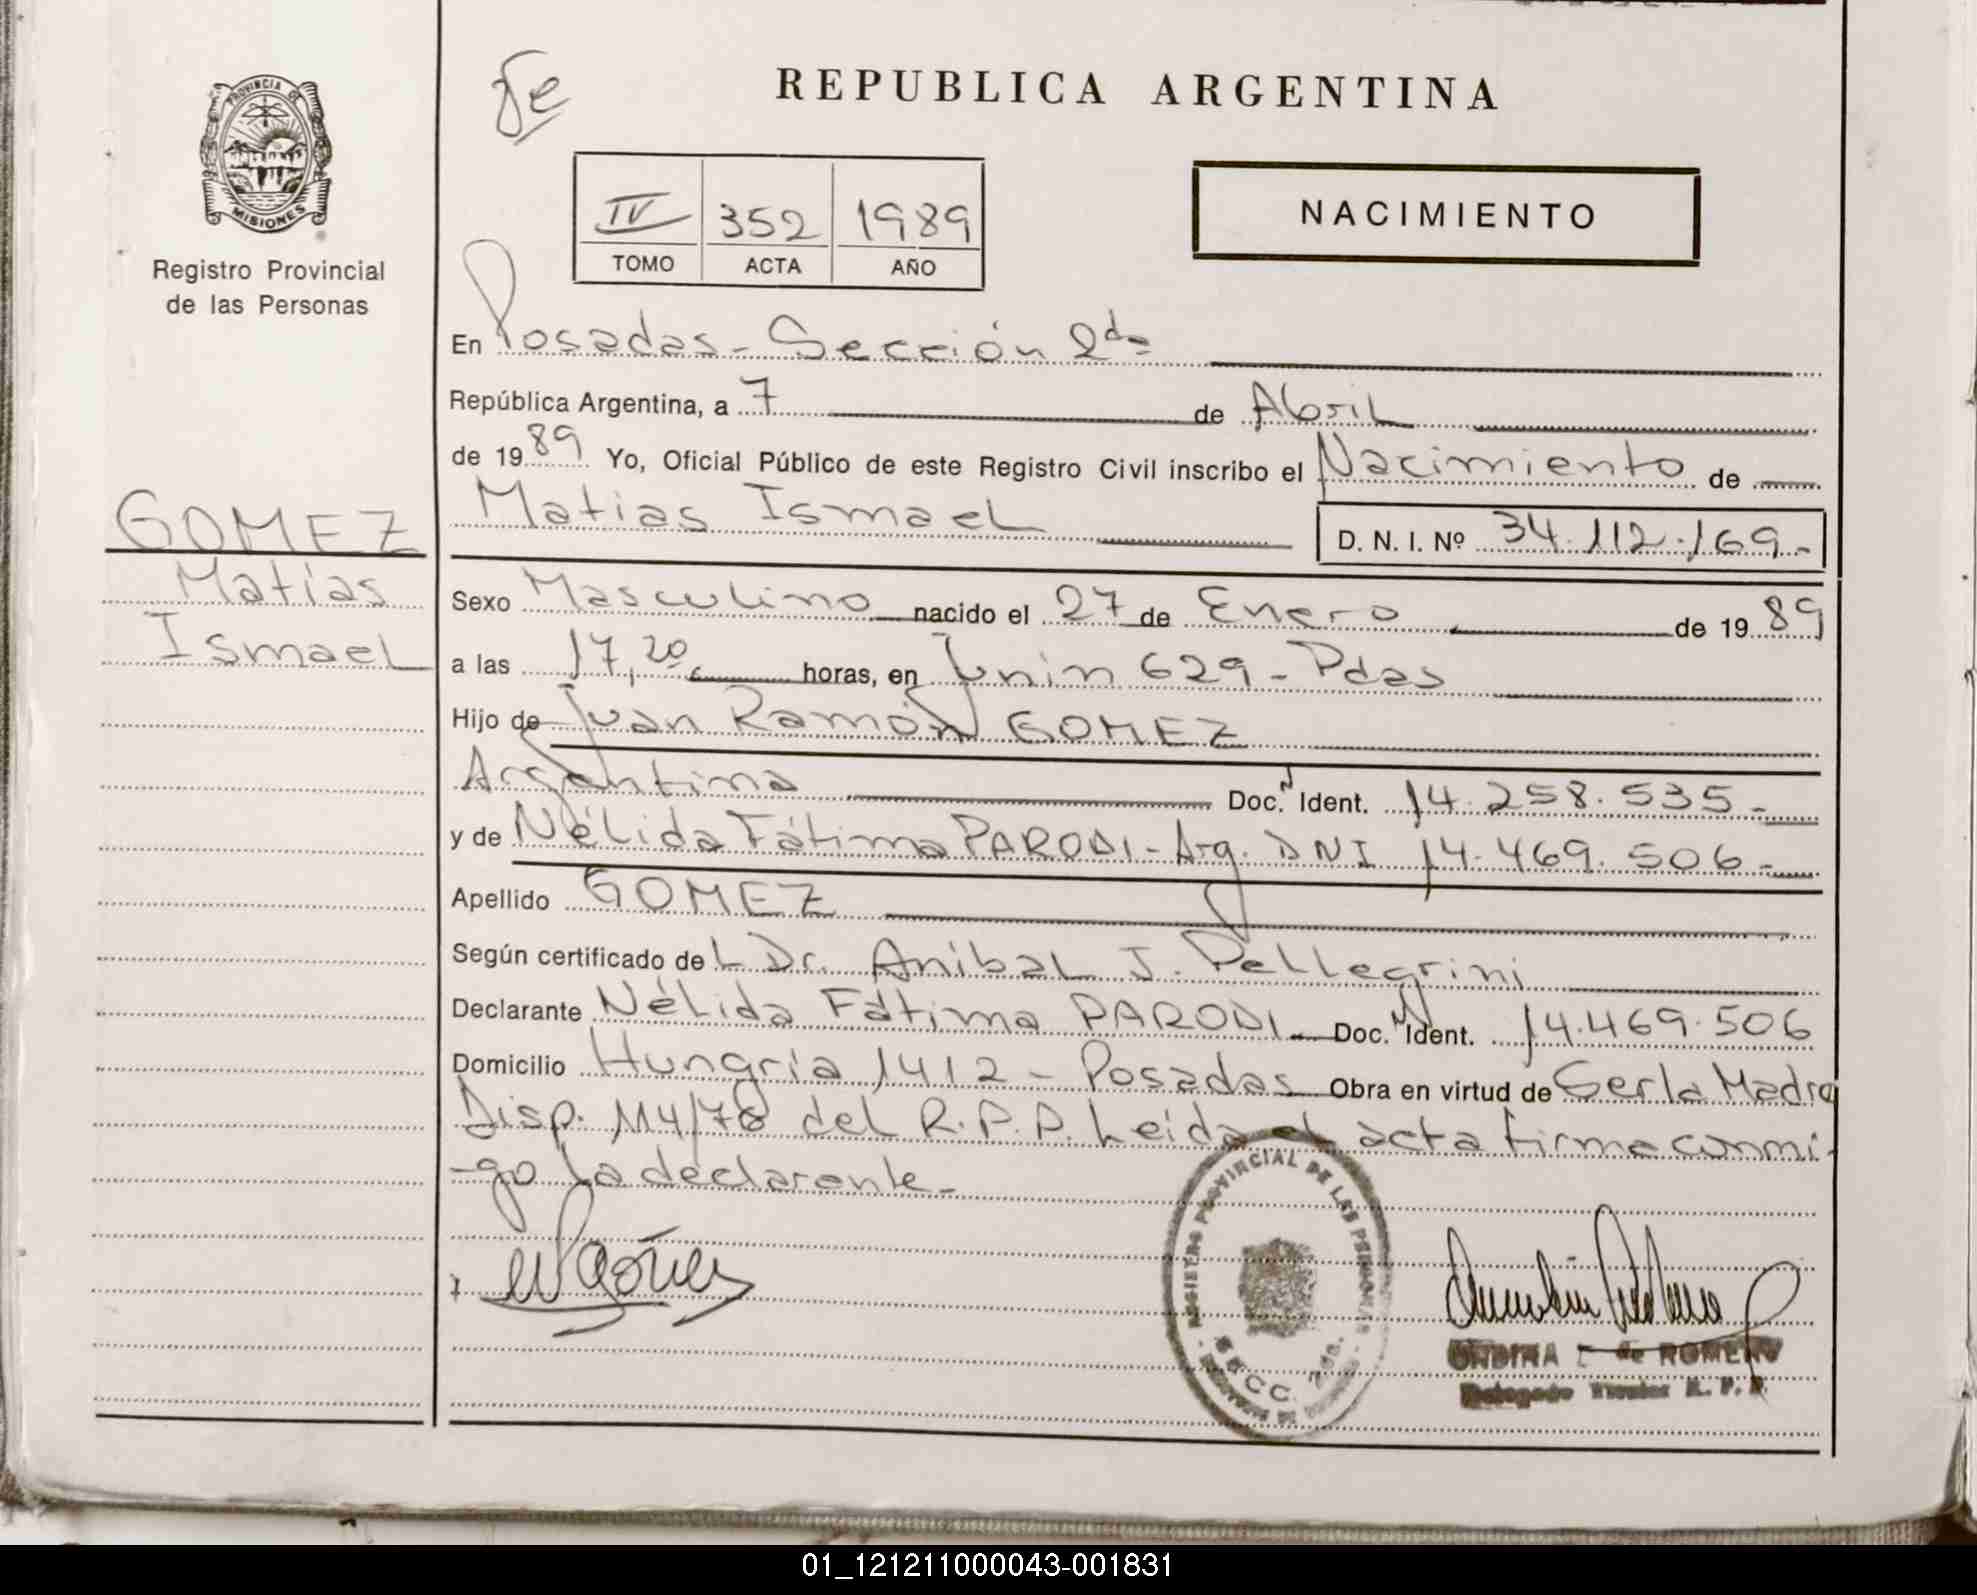 PROVINCIA DE
MISIONES
Registro Provincial
de las Personas
GOMEZ
Matías
Ismael
REPUBLICA ARGENTINA
IV 352 1989
TOMO ACTA AÑO
NACIMIENTO
En Posadas - Sección 2da
República Argentina, a 7 de Abril
de 1989 Yo, Oficial Público de este Registro Civil inscribo el Nacimiento de
Matias Ismael D. N. I. Nº 34.112.169.-
Sexo Masculino nacido el 27 de Enero de 1989
a las 17,20 horas, en Junin 629 - Pdas
Hijo de Juan Ramón GOMEZ
Argentina Doc. N Ident. 14.258.535.-
y de Nélida Fátima PARODI - Arg. DNI 14.469.506.-
Apellido GOMEZ
Según certificado del Dr. Anibal J. Pellegrini
Declarante Nélida Fátima PARODI Doc. N Ident. 14.469.506
Domicilio Hungría 1412 - Posadas Obra en virtud de Ser la Madre
Disp. 114/78 del R.P.P. Leida el acta firma conmi-
-go la declarante-
REGISTRO PROVINCIAL DE LAS PERSONAS
SECC. 2da.
de ROMERO
R. P. P.
01_121211000043-001831